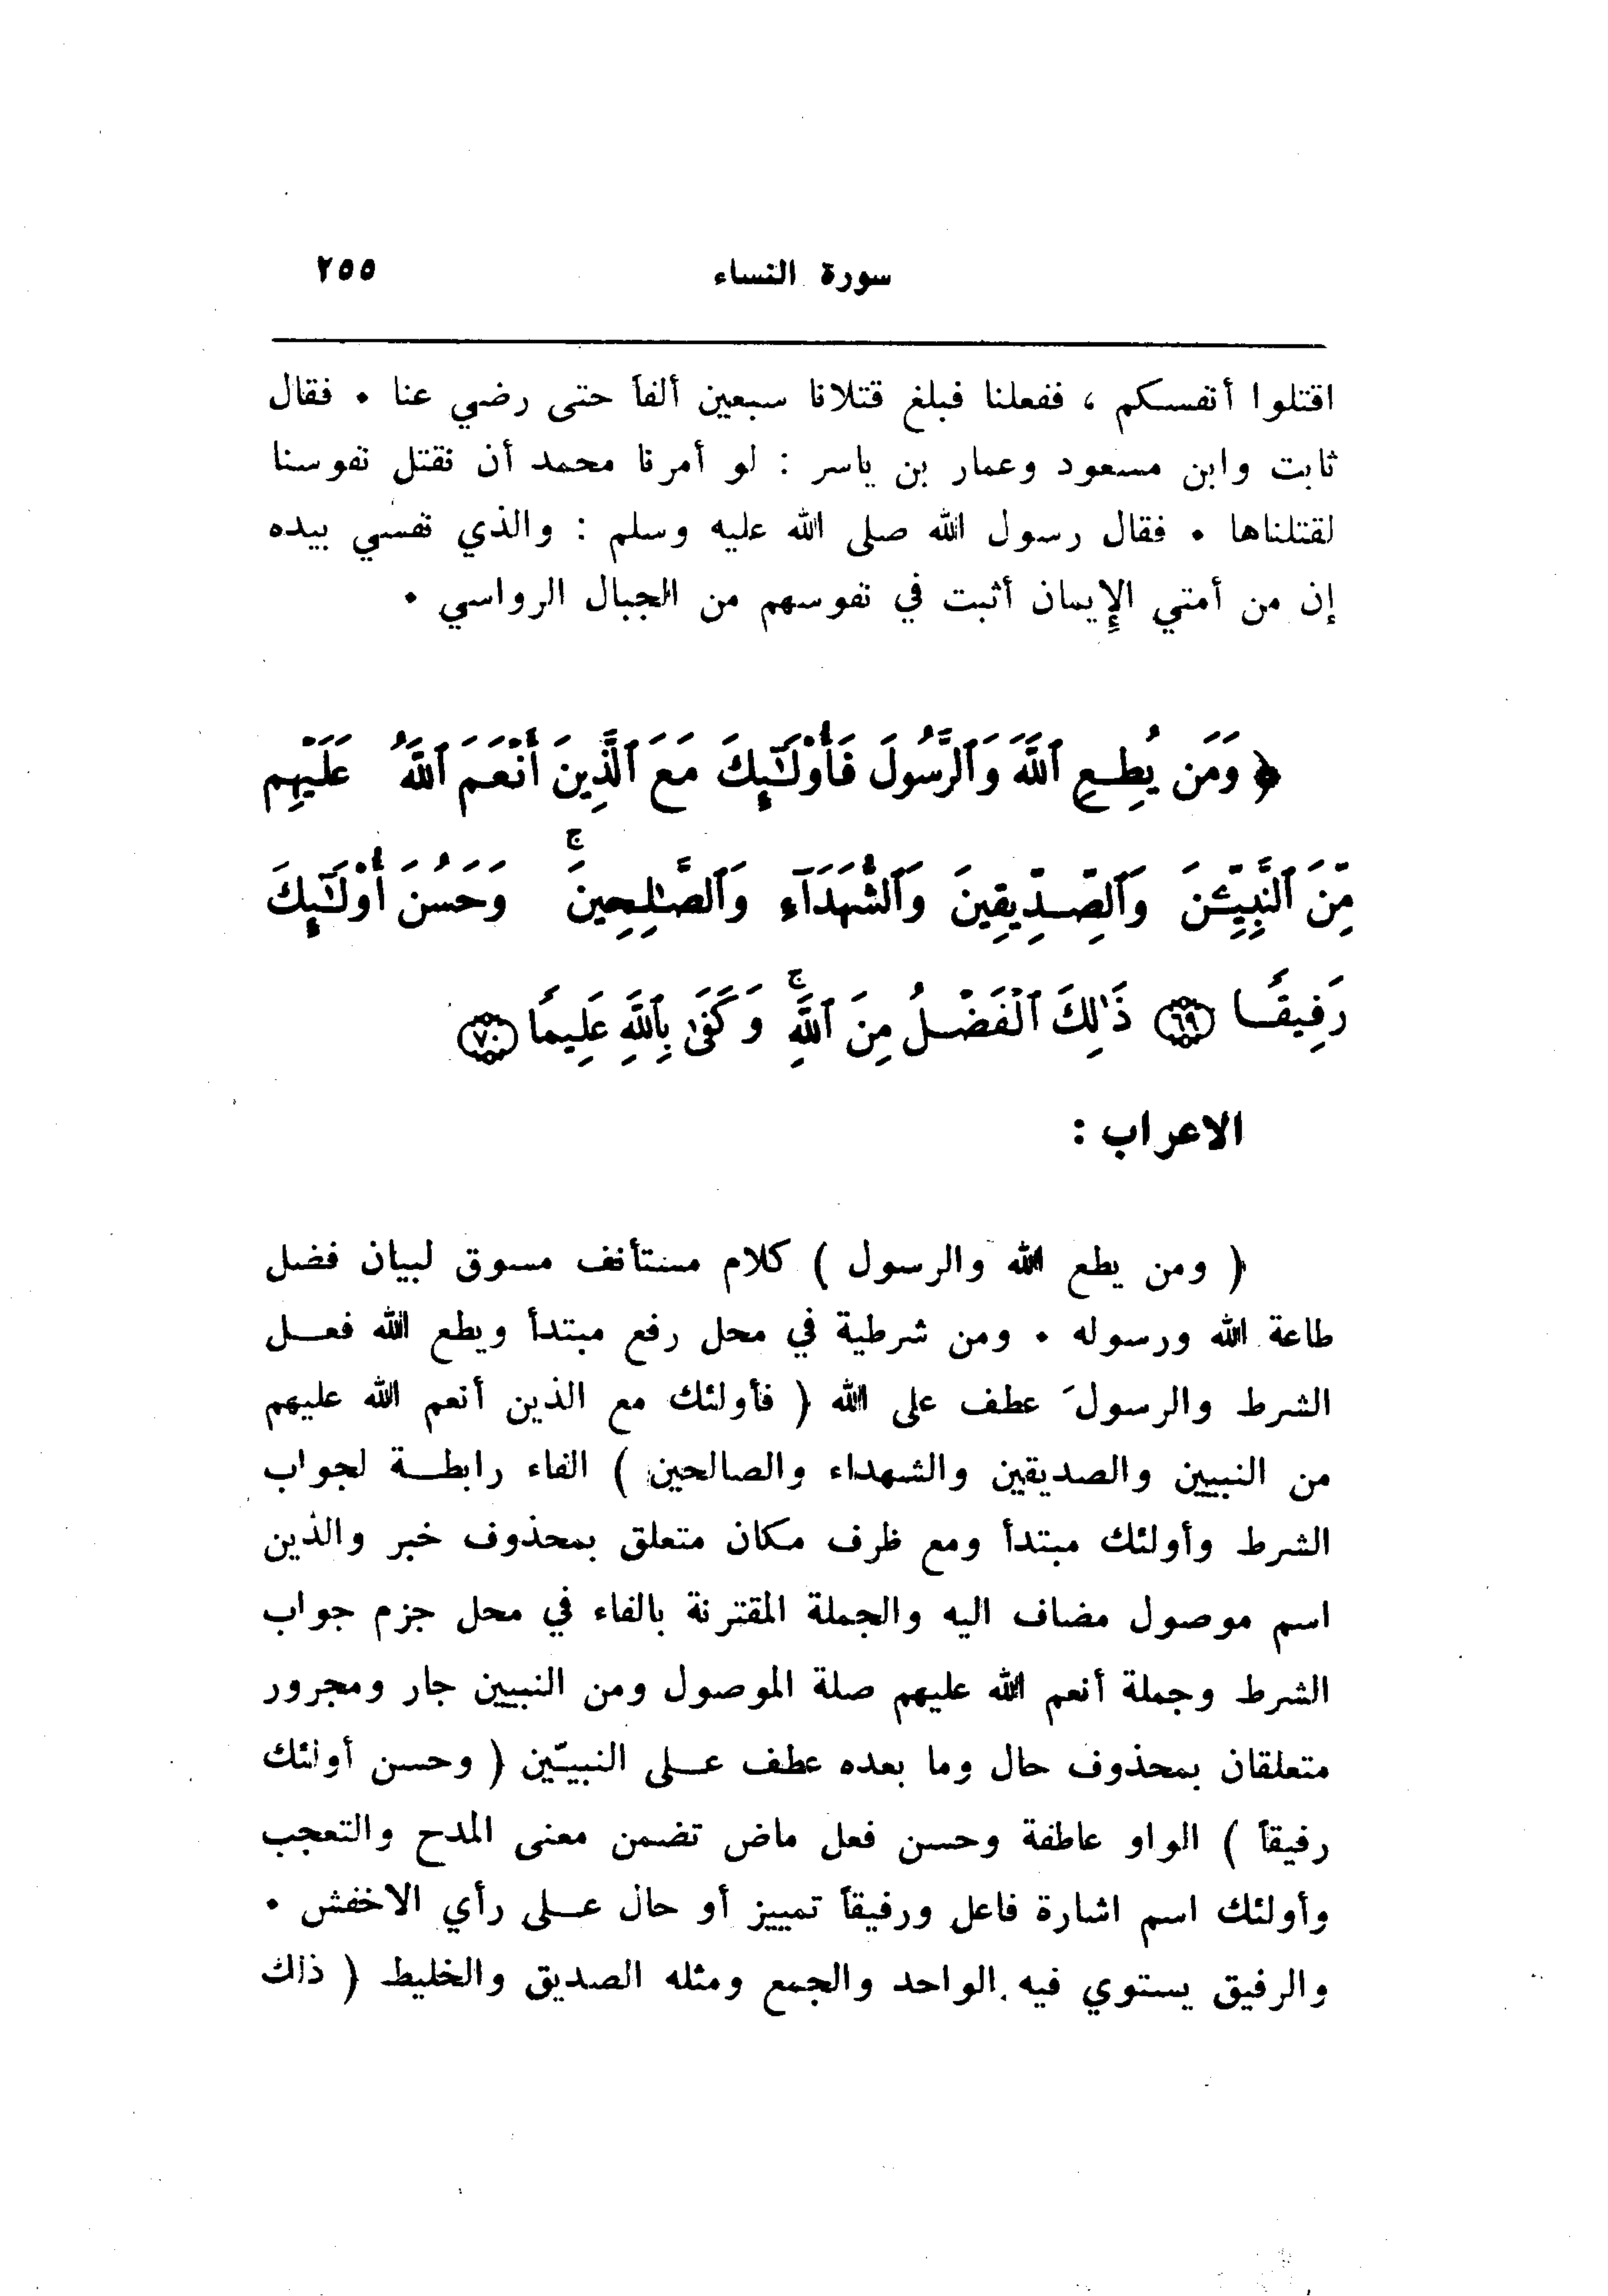 سورة النساء ٢٥٥
اقتلوا أنفسكم ، ففعلنا فبلغ قتلانا سبعين ألفاً حتى رضي عنا . فقال
ثابت وابن مسعود وعمار بن ياسر : لو أمرنا محمد أن نقتل نفوسنا
لقتلناها . فقال رسول الله صلى الله عليه وسلم : والذي نفسي بيده
إن من أمتي الإيمان أثبت في نفوسهم من الجبال الرواسي .
﴿ وَمَن يُطِعِ ٱللَّهَ وَٱلرَّسُولَ فَأُوْلَٰٓئِكَ مَعَ ٱلَّذِينَ أَنْعَمَ ٱللَّهُ عَلَيْهِم
مِّنَ ٱلنَّبِيِّـۧنَ وَٱلصِّدِّيقِينَ وَٱلشُّهَدَآءِ وَٱلصَّٰلِحِينَ ۚ وَحَسُنَ أُوْلَٰٓئِكَ
رَفِيقًا ٦٩ ذَٰلِكَ ٱلْفَضْلُ مِنَ ٱللَّهِ ۚ وَكَفَىٰ بِٱللَّهِ عَلِيمًا ٧٠
الاعراب :
( ومن يطع الله والرسول ) كلام مستأنف مسوق لبيان فضل
طاعة الله ورسوله . ومن شرطية في محل رفع مبتدأ ويطع الله فعـل
الشرط والرسولَ عطف على الله ( فأولئك مع الذين أنعم الله عليهم
من النبيين والصديقين والشهداء والصالحين ) الفاء رابطـة لجواب
الشرط وأولئك مبتدأ ومع ظرف مكان متعلق بمحذوف خبر والذين
اسم موصول مضاف اليه والجملة المقترنة بالفاء في محل جزم جواب
الشرط وجملة أنعم الله عليهم صلة الموصول ومن النبيين جار ومجرور
متعلقان بمحذوف حال وما بعده عطف عـلى النبييّن ( وحسن أولئك
رفيقاً ) الواو عاطفة وحسن فعل ماض تضمن معنى المدح والتعجب
وأولئك اسم اشارة فاعل ورفيقاً تمييز أو حال عـلى رأي الاخفش .
والرفيق يستوي فيه الواحد والجمع ومثله الصديق والخليط ( ذلك